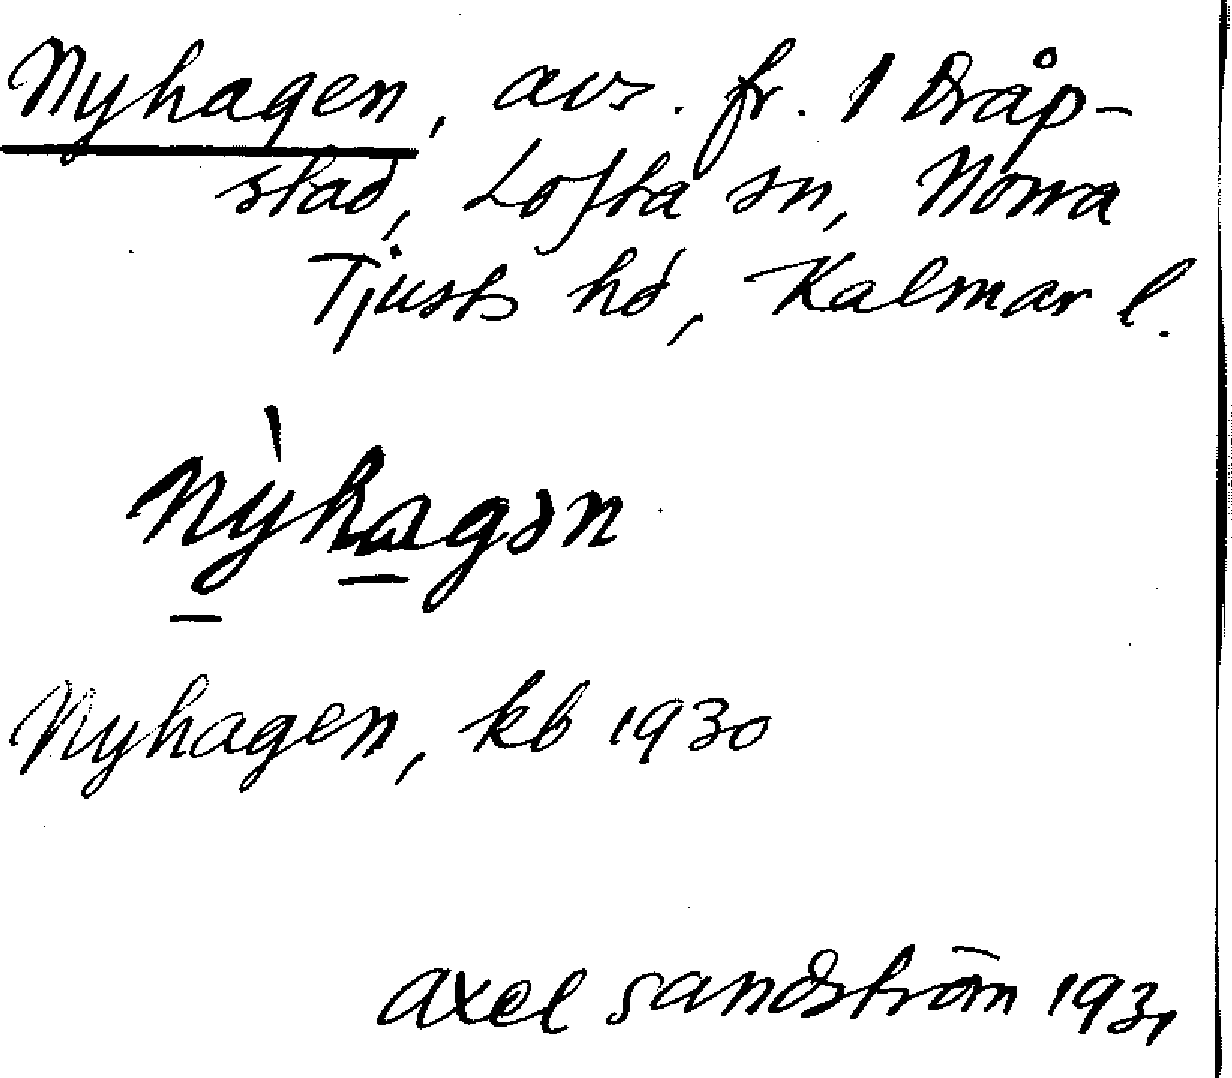 Nyhagen, avs. fr. 1 Dråp-
stad, Lofta sn, Norra
Tjusts hd, Kalmar l.
Nỳhagən
Nyhagen, kb 1930
Axel Sandström 1931